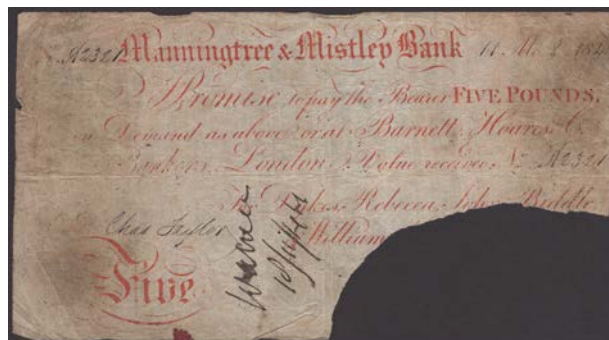 A2321 Manningtree & Mistley Bank
I Promise to pay the Bearer FIVE POUNDS,
on Demand as above or at Barnett, Hoares, & Co.
Bankers, London, Value received, No. A2321
Rebecca, John Biddle
Chas Taylor William
Five